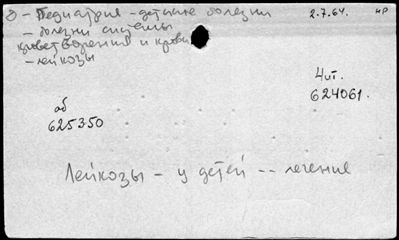 О - Педиатрия - детские болезни 2.7.64. нр
- болезни системы
кроветворения и крови
- лейкозы
Чит.
624061.
аб
625350
Лейкозы - у детей -- лечение